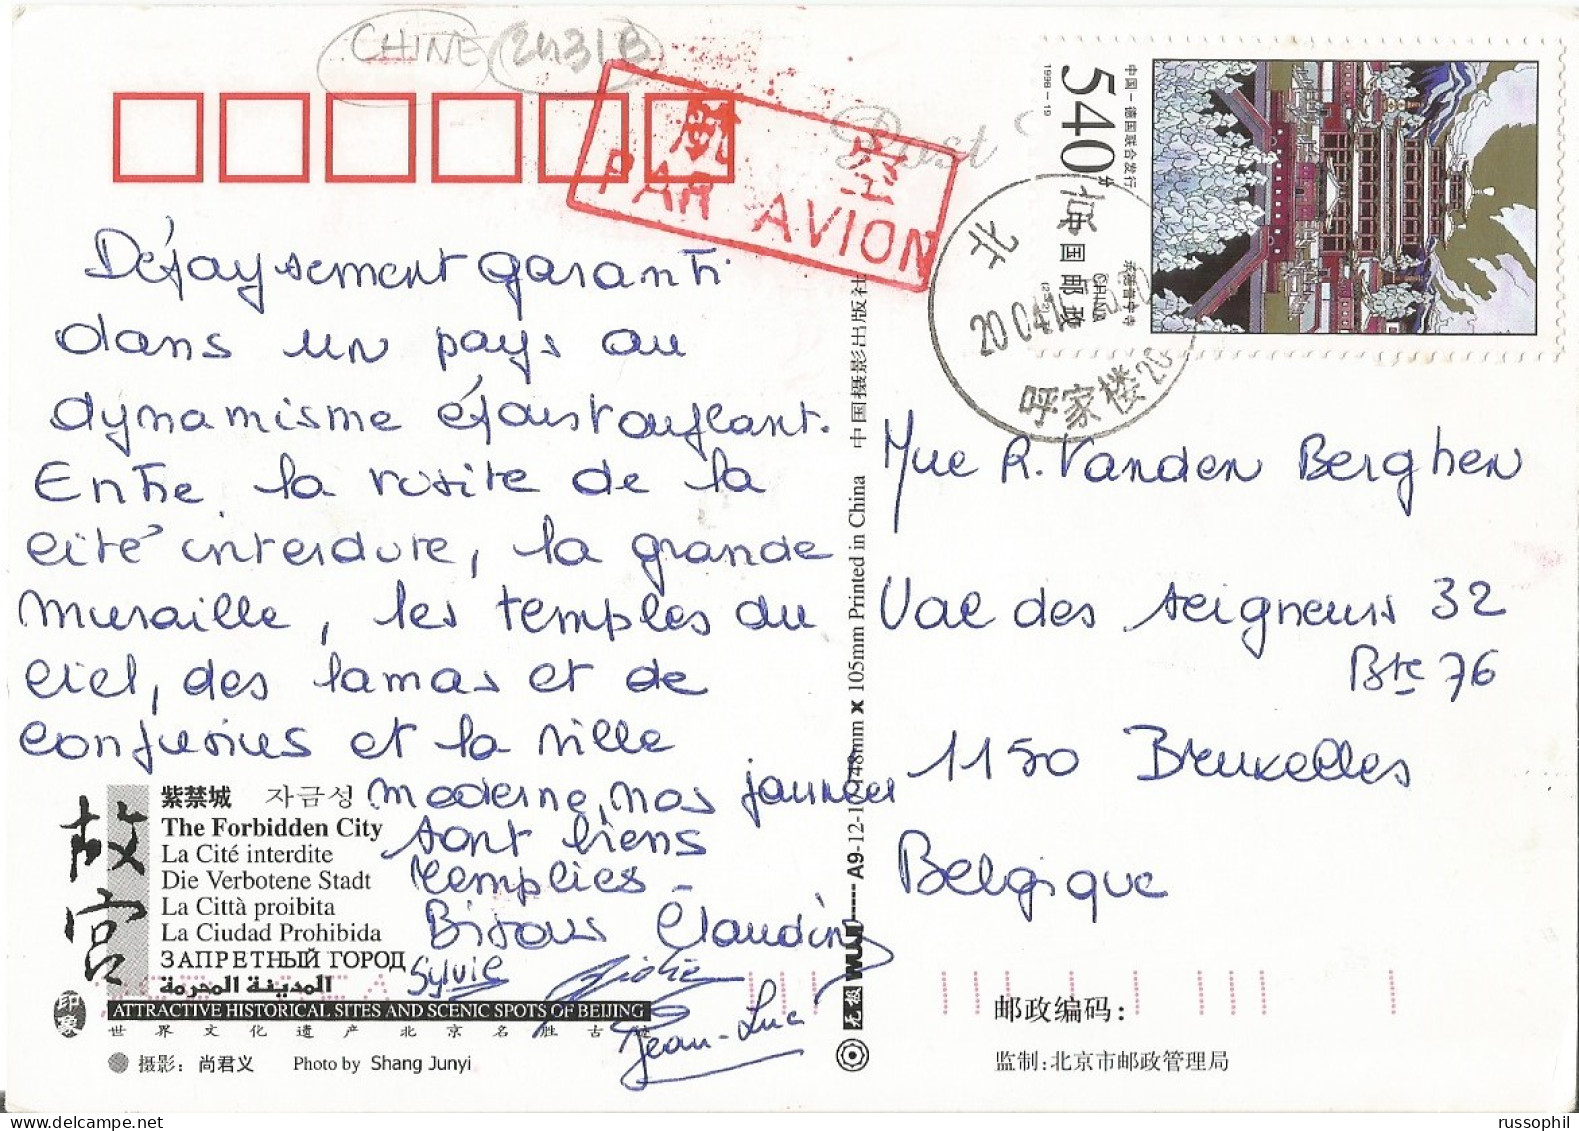 CHINE 2431B
航空
PAR AVION
中国-德国联合发行
1998-19
540分
中国邮政
CHINA
承德普宁寺
北京
20 04
呼家楼 20
Dépaysement garanti
dans un pays au
dynamisme époustouflant.
Entre la visite de la
cité interdite, la grande
muraille, les temples du
ciel, des lamas et de
confusius et la ville
moderne, nos journées
sont biens
remplies -
Bisous Claudine
Sylvie
Jean-Luc
Mme R. Vanden Berghen
Val des seigneurs 32
Bte 76
1150 Bruxelles
Belgique
中国摄影出版社
A9-12-1 148mm x 105mm Printed in China
WUJI
无极
故宫
印象
紫禁城 자금성
The Forbidden City
La Cité interdite
Die Verbotene Stadt
La Città proibita
La Ciudad Prohibida
ЗАПРЕТНЫЙ ГОРОД
المدينة المحرمة
ATTRACTIVE HISTORICAL SITES AND SCENIC SPOTS OF BEIJING
世界文化遗产 北京名胜古迹
摄影：尚君义 Photo by Shang Junyi
邮政编码：
监制：北京市邮政管理局
russophil